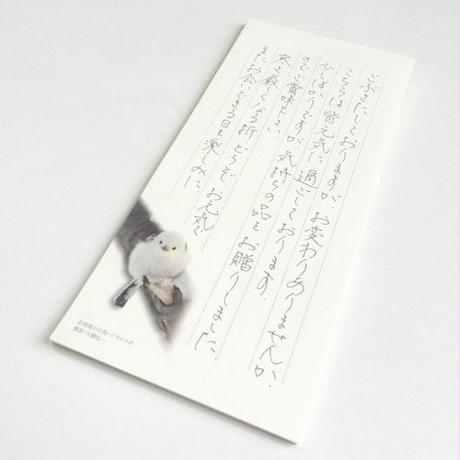 ごぶさたしておりますが、お変わりありませんか。
こちらは皆元気に過ごしております。
少しばかりですが、気持ちの品をお贈りしました
のでご賞味下さい。
寒さ厳しくなる折、どうぞお元気で
またお会いできる日を楽しみに。
北海道の小鳥・シマエナガ
撮影:大橋弘一